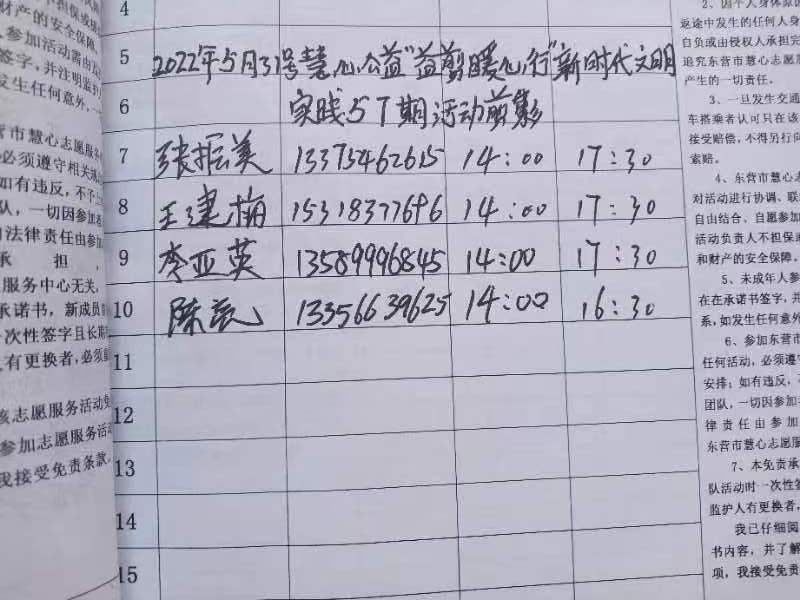 4
5 2022年5月31号慧心公益"益剪暖心行"新时代文明
6 实践57期活动剪影
7 张振美 13375462615 14:00 17:30
8 王建梅 15318377696 14:00 17:30
9 李亚英 13589996845 14:00 17:30
10 陈 13356639625 14:00 16:30
11
12
13
14
15
财产的安全保障。
参加活动需由监
签字,并注明监护
发生任何意外,
营市慧心志愿服务
必须遵守相关规
如有违反,不予
队,一切因参加
由法律责任由参加
承担,
服务中心无关。
承诺书,新成员
一次性签字且长期
人有更换者,必须
该志愿服务活动免
参加志愿服务活动
我接受免责条款。
2、因个人身体原因
返途中发生的任何人身
自负或由侵权人承担完
追究东营市慧心志愿服
产生的一切责任。
3、一旦发生交通
车搭乘者认可只在该
接受赔偿,不得另行向
索赔。
4、东营市慧心志
对活动进行协调、联
自由结合、自愿参加
活动负责人不担保
和财产的安全保障。
5、未成年人参
在在承诺书签字,并
系,如发生任何意外
6、参加东营市
任何活动,必须遵守
安排;如有违反,
团队,一切因参加
律责任由参加
东营市慧心志愿服
7、本免责承
队活动时一次性签
监护人有更换者,
我已仔细阅
书内容,并了解
项,我接受免责